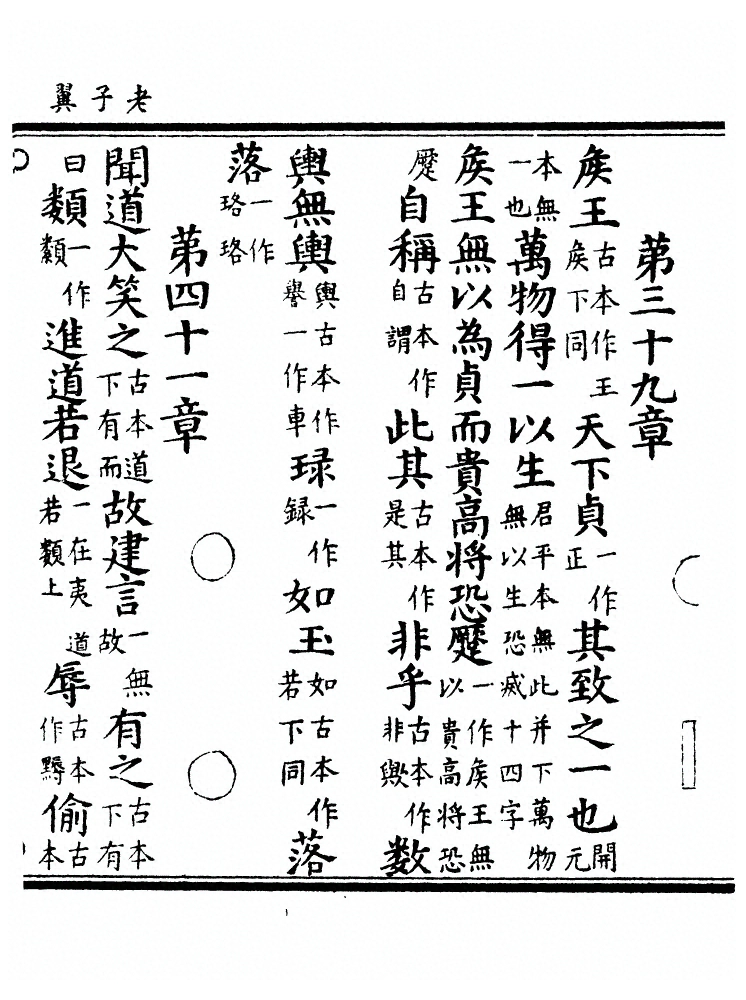 老子翼
第三十九章
矦王古本作王矦下同天下貞一作正其致之一也開元
本無一也萬物得一以生君平本無此并下萬物無以生恐滅十四字
矦王無以為貞而貴高將恐蹷一作矦王無以貴高將恐
蹷自稱古本作自謂此其古本作是其非乎古本作非歟數
輿無輿輿古本作譽一作車琭一作録如玉如古本作若下同落
落一作珞珞
第四十一章
聞道大笑之古本道下有而故建言一無故有之古本下有
曰類一作纇進道若退一在夷道若類上辱古本作䵁偷古本